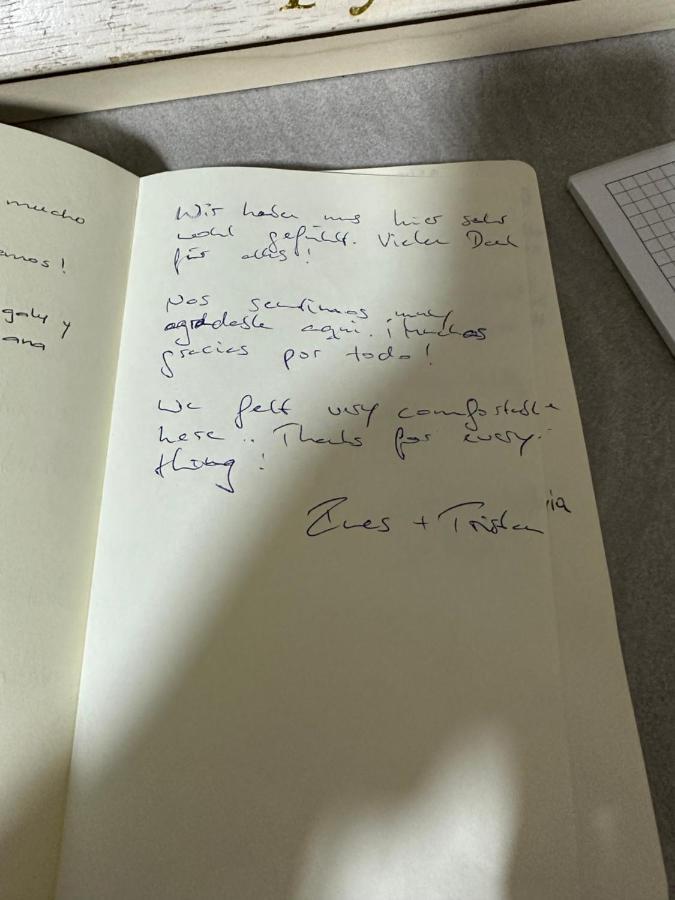 mucho
anos!
galy y
ana
Wir haben uns hier sehr
wohl gefühlt. Vielen Dank
für alles!
Nos sentimos muy
agradable aqui. ¡Muchas
gracias por todo!
We felt very comfortable
here.. Thanks for every-
thing!
+ Tristan